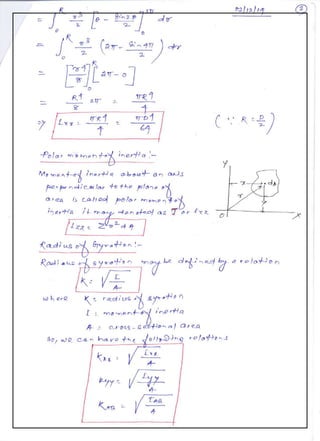 12/12/19 ②
= ∫₀ᴿ r³/2 [θ - sin2θ/2]₀²ᴨ dr
= ∫₀ᴿ r³/2 (2π - sin4π/2) dr
= [r⁴/8]₀ᴿ [2π - 0]
= R⁴/8 2π = πR⁴/4
⇒ Ixx = πR⁴/4 = πD⁴/64 (∵ R = D/2)
Polar moment of inertia :-
Moment of inertia about an axis
perpendicular to the plane of
area is called polar moment of
inertia it may denoted as J or Izz
Izz = Σr² dA
y x dA r y O x
Radius of Gyration :-
Radius of gyration may be defined by a relation
K = √(I/A)
where K = radius of gyration
I = moment of inertia
A = cross-sectional area
So, we can have the following relations
Kxx = √(Ixx/A)
Kyy = √(Iyy/A)
KAB = √(IAB/A)